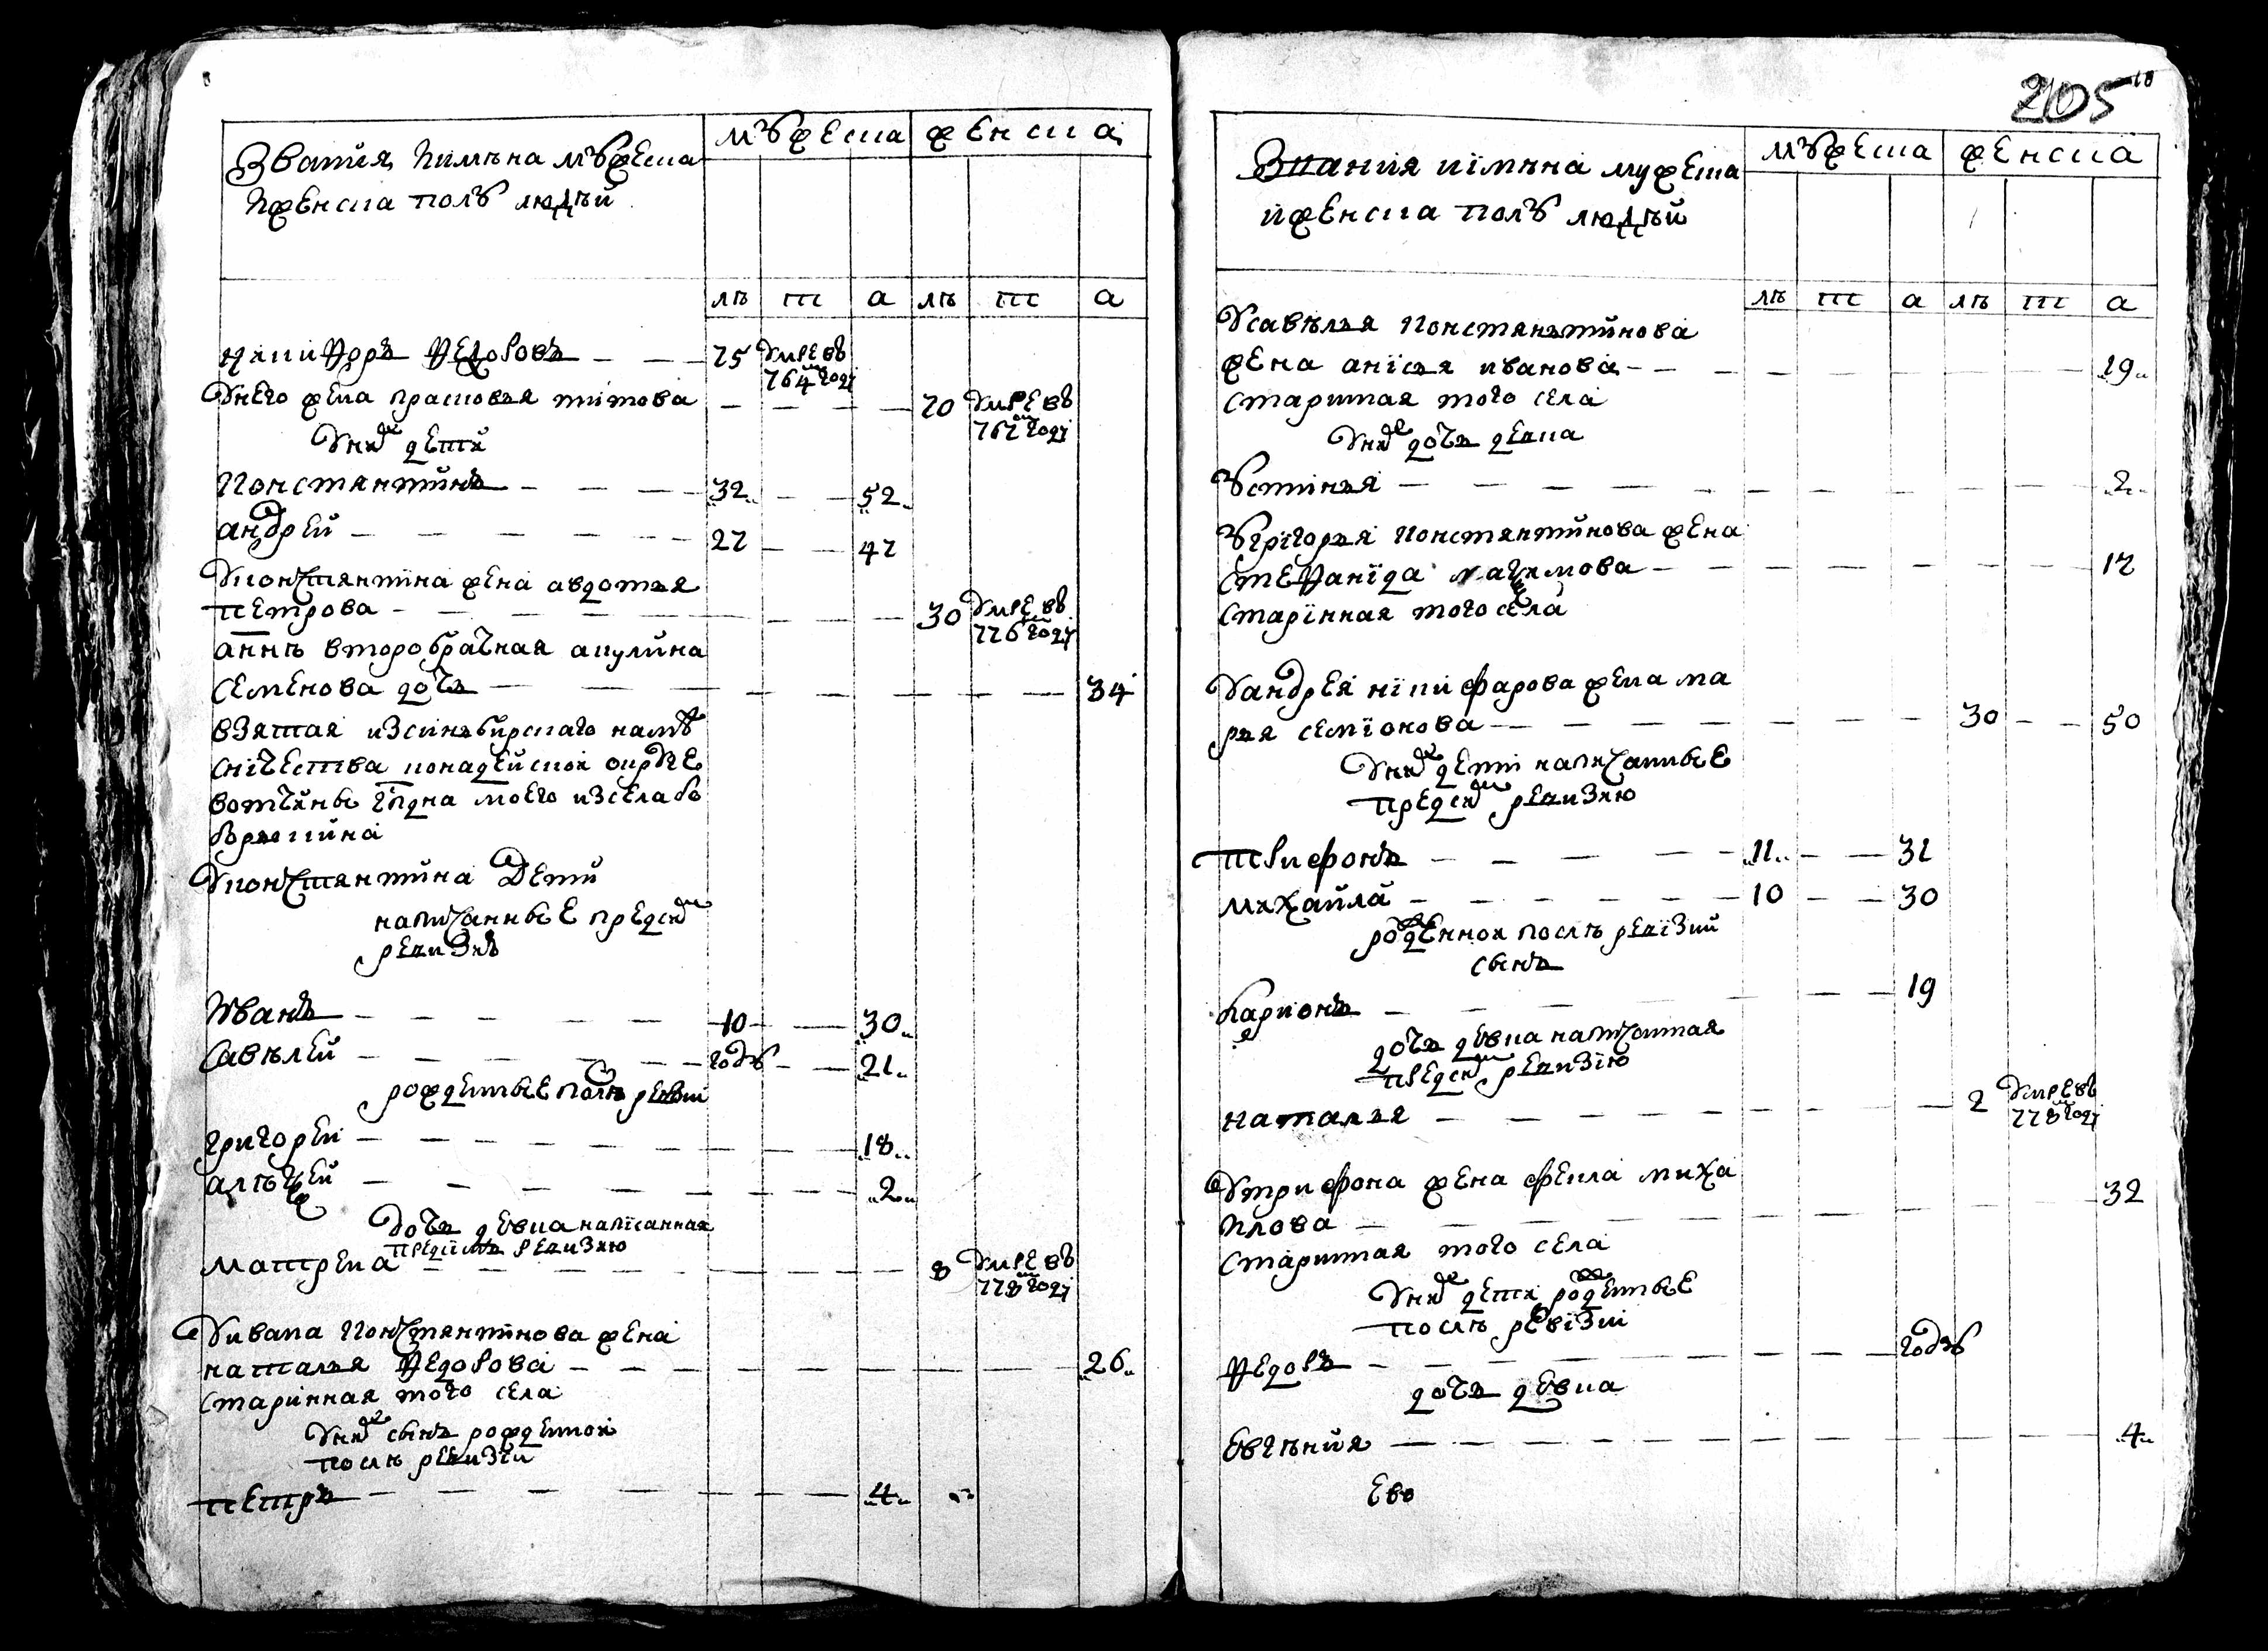 Звания, иимѣна мужеска
мужеска
женска
ижен­ска полъ людѣй
лѣ т а лѣ т а
никифоръ федоровъ 75 умревъ
764 годı
Унего жена прасковья титова 70 умре въ
767 годı
Уних детй
Константинъ 32 52
андрей 27 47
Уконстянтина жена авдотья
Петрова 30 умре въ
776 годı
аннѣ второбрачная акулина
Семенова дочь 34
взятая изсинъбирскаго намѣ
сничества канадейской окрꙋге
вотчины гдна моего изсела бо
борыкина
Уконстянтина Дети
написанные предсию
ревизию
Иванъ 10 30
Савѣлей годъ 21
рожденные послѣ ревизıи
григореи 18
алѣѯей 2
Дочь девка написанная
Предсимъ ревизию
Матрена 8 умре въ
778 годı
Уивана Констянтинова жена
наталья федорова 26
старинная того села
Уних сынъ рожденной
послѣ ревизıи
Петръ 4
205
Звания иıмѣна мужеска
мужеска
женска
иженска полъ людѣй
лѣ т а лѣ т а
Усавѣлья Констянътинова
жена анıсья иванова 19
старинная того села
Уних дочь девка
Устинья 2
Угрıгорья Констянтинова жена
Стефанıда маѯимова 17
старıнная того села
Уандрея нıкифарова жена ма
рья семıонова 30 50
Уних детı написанные
предсию ревизию
Трифонъ 11 31
михайла 10 30
рожденной послѣ ревıзий
сынъ
Ларионъ 19
дочь девка написанная
предсию ревизıю
наталья 2 умре въ
778 годı
Утрифона жена фекла миха
илова 32
старинная того села
Уних дети рожденные
послѣ ревıзıи
федоръ годъ
дочь девка
Евгѣния 4
Ево